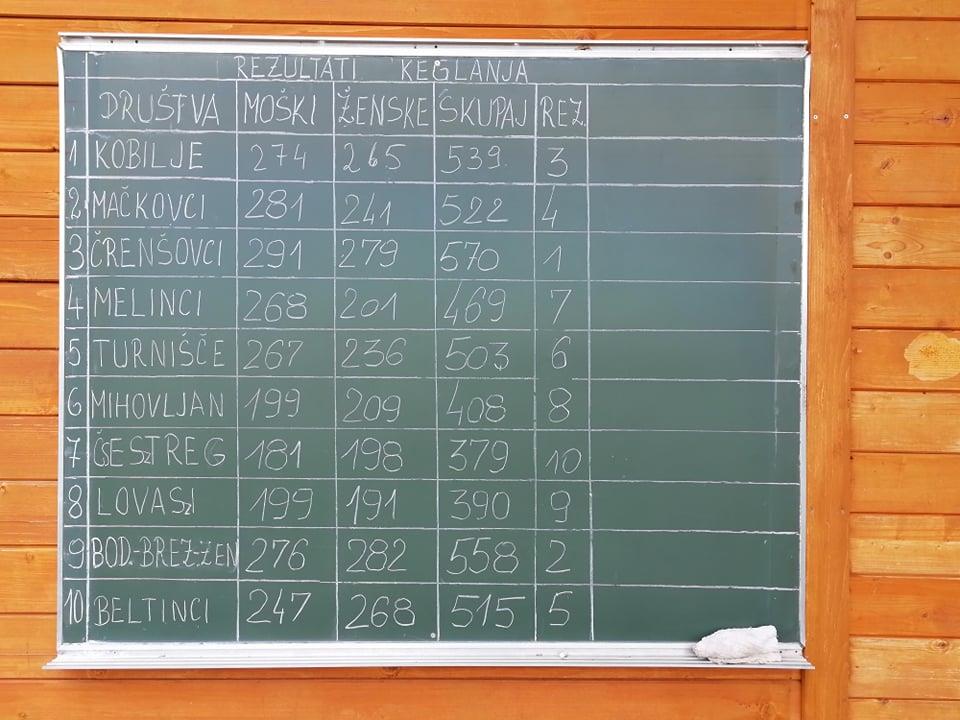 REZULTATI KEGLANJA
DRUŠTVA MOŠKI ŽENSKE SKUPAJ REZ.
1 KOBILJE 274 265 539 3
2 MAČKOVCI 281 241 522 4
3 ČRENŠOVCI 291 279 570 1
4 MELINCI 268 201 469 7
5 TURNIŠČE 267 236 503 6
6 MIHOVLJAN 199 209 408 8
7 CSESZTREG 181 198 379 10
8 LOVASZI 199 191 390 9
9 BOD.-BREZ-ŽEN 276 282 558 2
10 BELTINCI 247 268 515 5